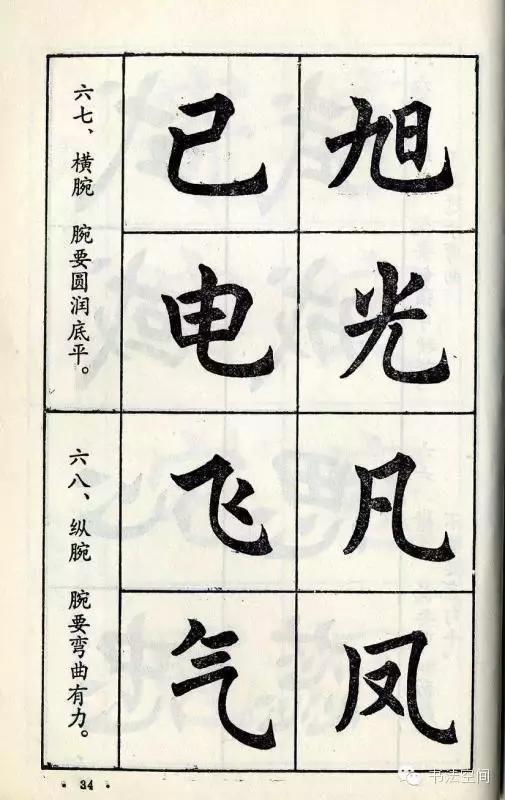 旭光凡凤
已电飞气
六七、横腕 腕要圆润底平。
六八、纵腕 腕要弯曲有力。
· 34 ·
书法空间